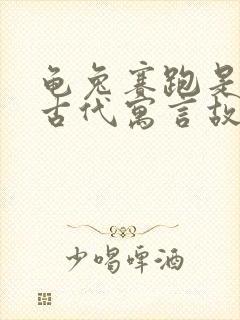 龟兔赛跑是
古代寓言故
少喝啤酒